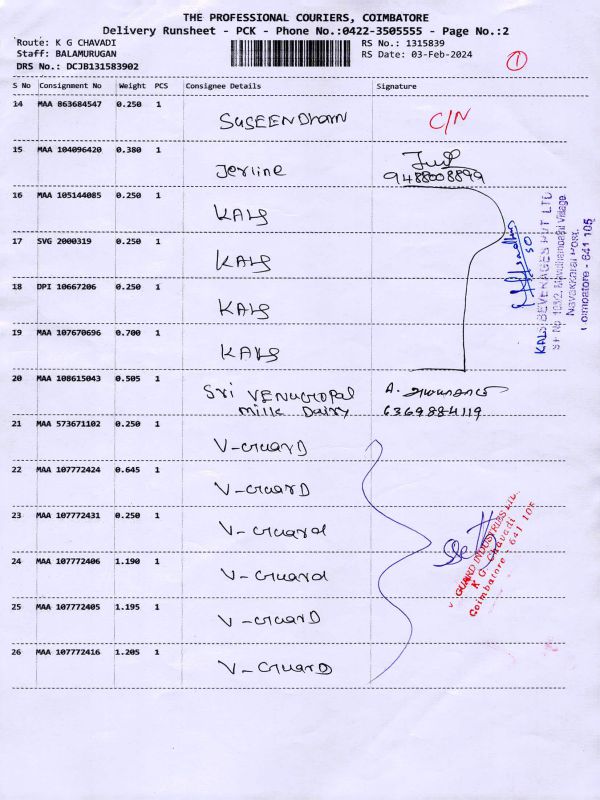 THE PROFESSIONAL COURIERS, COIMBATORE
Delivery Runsheet - PCK - Phone No.:0422-3505555 - Page No.:2
Route: K G CHAVADI RS No.: 1315839
Staff: BALAMURUGAN RS Date: 03-Feb-2024
DRS No.: DCJB131583902
1
S No Consignment No Weight PCS Consignee Details Signature
14 MAA 863684547 0.250 1 SUSEENDharN C/N
15 MAA 104096420 0.380 1 Jerline
9488008899
16 MAA 105144085 0.250 1 KALS
17 SVG 2000319 0.250 1 KALS
18 DPI 10667206 0.250 1 KALS
19 MAA 107670696 0.700 1 KALS
KALS BEVERAGES PVT LTD
Navakkarai Post,
Coimbatore - 641 105
20 MAA 108615043 0.505 1 Sri VENUGOPAL
Milk Dairy
6369884119
21 MAA 573671102 0.250 1 V-GuarD
22 MAA 107772424 0.645 1 V-GuarD
23 MAA 107772431 0.250 1 V-Guard
24 MAA 107772406 1.190 1 V-Guard
25 MAA 107772405 1.195 1 V-GuarD
26 MAA 107772416 1.205 1 V-GuarD
V GUARD INDUSTRIES LTD.
K G Chavadi
Coimbatore - 641 105